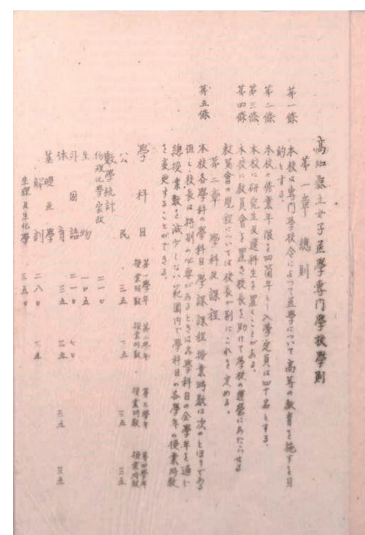 高知縣立女子医學専門學校學則
第一章 總則
第一條 本校は専門學校令によつて医學について高等の教育を施すを目
的とする。
第二條 本校の修業年限を四箇年とし入學定員は四十名とする。
第三條 本校に研究生及選科生を置くことがある。
第四條 本校に教員會を置き校長を助けて學校の運營にあたらせる
教員會の規程については校長が別にこれを定める。
第二章 學科及課程
第五條 本校各學科の學科目、學課課程、授業時數は次のとほりである
但し校長は特別の必要があるときは各學科目の全學年を通じ
總授業數を減少しない範囲内で學科目の各學年の授業時數
を変更することができる。
學科目 第一學年授業時數 第二學年授業時數 第三學年授業時數 第四學年授業時數
公民 三五 三五 三五
數學統計
物理化學實験 二一〇
生物 一〇五
外國語
体育 三五 三五 三五 三五
基礎医學
解剖 二八〇
生理及生化學